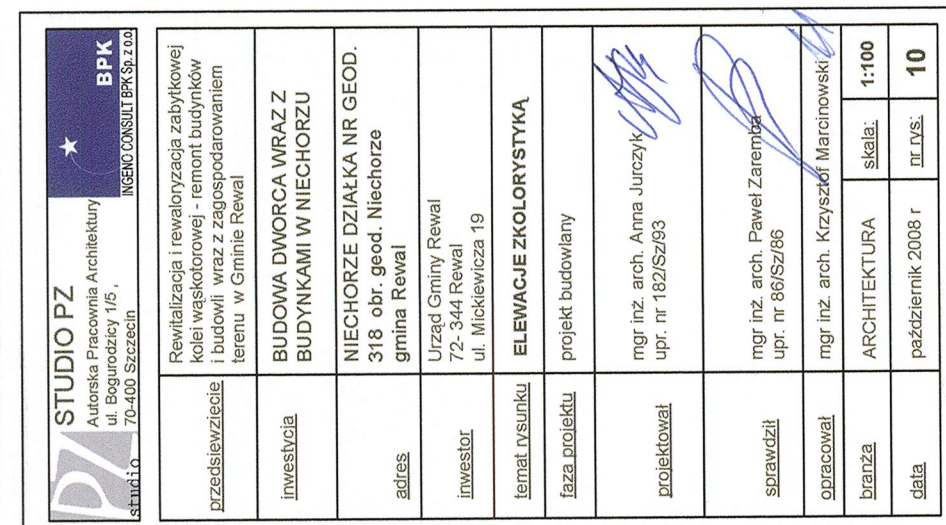 PZ
studio
STUDIO PZ
Autorska Pracownia Architektury
ul. Bogurodzicy 1/5 ,
70-400 Szczecin
BPK
INGENO CONSULT BPK Sp. z o.o.
przedsięwzięcie
Rewitalizacja i rewaloryzacja zabytkowej
kolei wąskotorowej - remont budynków
i budowli wraz z zagospodarowaniem
terenu w Gminie Rewal
inwestycja
BUDOWA DWORCA WRAZ Z
BUDYNKAMI W NIECHORZU
adres
NIECHORZE DZIAŁKA NR GEOD.
318 obr. geod. Niechorze
gmina Rewal
inwestor
Urząd Gminy Rewal
72- 344 Rewal
ul. Mickiewicza 19
temat rysunku
ELEWACJE ZKOLORYSTYKĄ
faza projektu
projekt budowlany
projektował
mgr inż. arch. Anna Jurczyk
upr. nr 182/Sz/93
sprawdził
mgr inż. arch. Paweł Zaremba
upr. nr 86/Sz/86
opracował
mgr inż. arch. Krzysztof Marcinowski
branża
ARCHITEKTURA
skala:
1:100
data
październik 2008 r
nr rys:
10